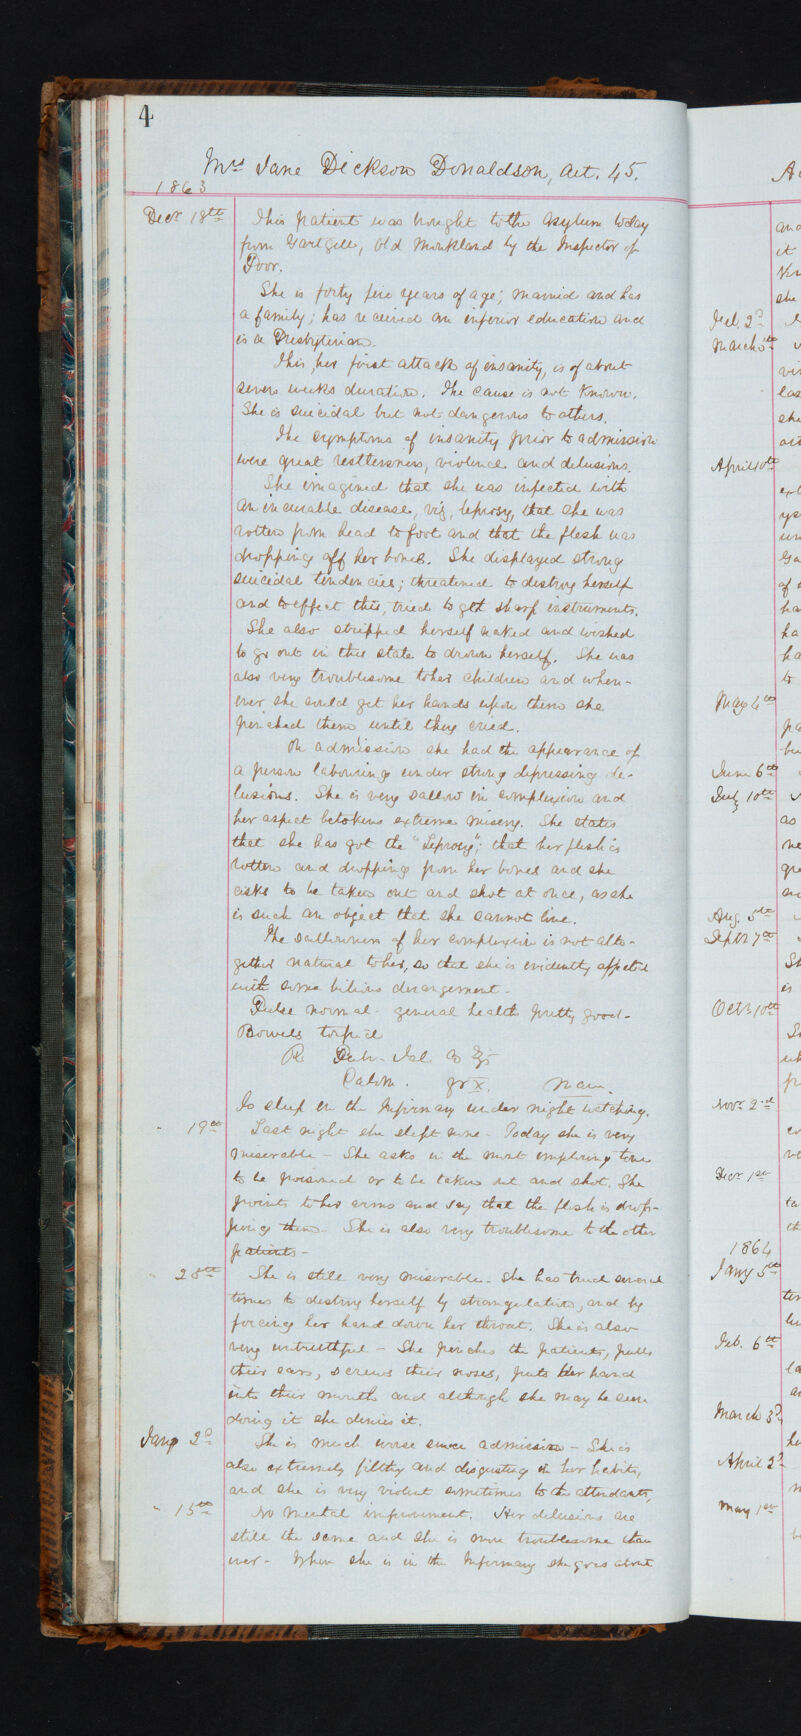 4
Mrs Jane Dickson Donaldson, aet. 45.
1863
Decr 18th This patient was brought to the asylum today
from Gartgill, Old Monkland by the Inspector of
Poor.
She is forty five years of age; married and has
a family; has received an inferior education and
is a Presbyterian.
This, her first attack of insanity, is of about
seven weeks duration. The cause is not known.
She is suicidal but not dangerous to others.
The symptoms of insanity prior to admission
were great restlessness, violence and delusions.
She imagined that she was infected with
an incurable disease, viz, leprosy, that she was
rotten from head to foot and that the flesh was
dropping off her bones. She displayed strong
suicidal tendencies; threatened to destroy herself
and to effect this, tried to get sharp instruments.
She also stripped herself naked and wished
to go out in this state to drown herself. She was
also very troublesome to her children and when-
ever she could get her hands upon them she
pinched them until they cried.
On admission she had the appearance of
a person labouring under strong depressing de-
lusions. She is very sallow in complexion and
her aspect betokens extreme misery. She states
that she has got the "Leprosy"; that her flesh is
rotten and dropping from her bones and she
asks to be taken out and shot at once, as she
is such an object that she cannot live.
The sallowness of her complexion is not alto-
gether natural to her, so that she is evidently affected
with some bilious derangement -
Pulse normal - general health pretty good -
Bowels torpid
Calom. gr x.
To sleep in the Infirmary under night watching.
" 19th Last night she slept none - Today she is very
miserable - She asks in the most imploring tone
to be poisoned or to be taken out and shot. She
points to her arms and say that the flesh is drop-
ping them - She is also very troublesome to the other
patients -
" 28th She is still very miserable - She has tried several
times to destroy herself by strangulation, and by
forcing her hand down her throat. She is also
very untruthful - She pinches the patients, pulls
their ears, screws their noses, puts her hand
into their mouth and although she may be seen
doing it she denies it.
Jany 2d She is much worse since admission - She is
also extremely filthy and disgusting in her habits,
and she is very violent sometimes to the attendants,
" 15th No mental improvement. Her delusions are
still the same and she is more troublesome than
ever - When she is in the Infirmary she goes about
and
it
she
Feb. 2d
March 5th
las
she
April 10th
of
ha
ha
to
May 4th
June 6th
July 10th
as
Aug. 5th
Septr 7th
is
Octr 10th
Novr 2nd
Decr 1st
1864
Jany 5th
Feb. 6th
March 3d
April 2d
May 1st